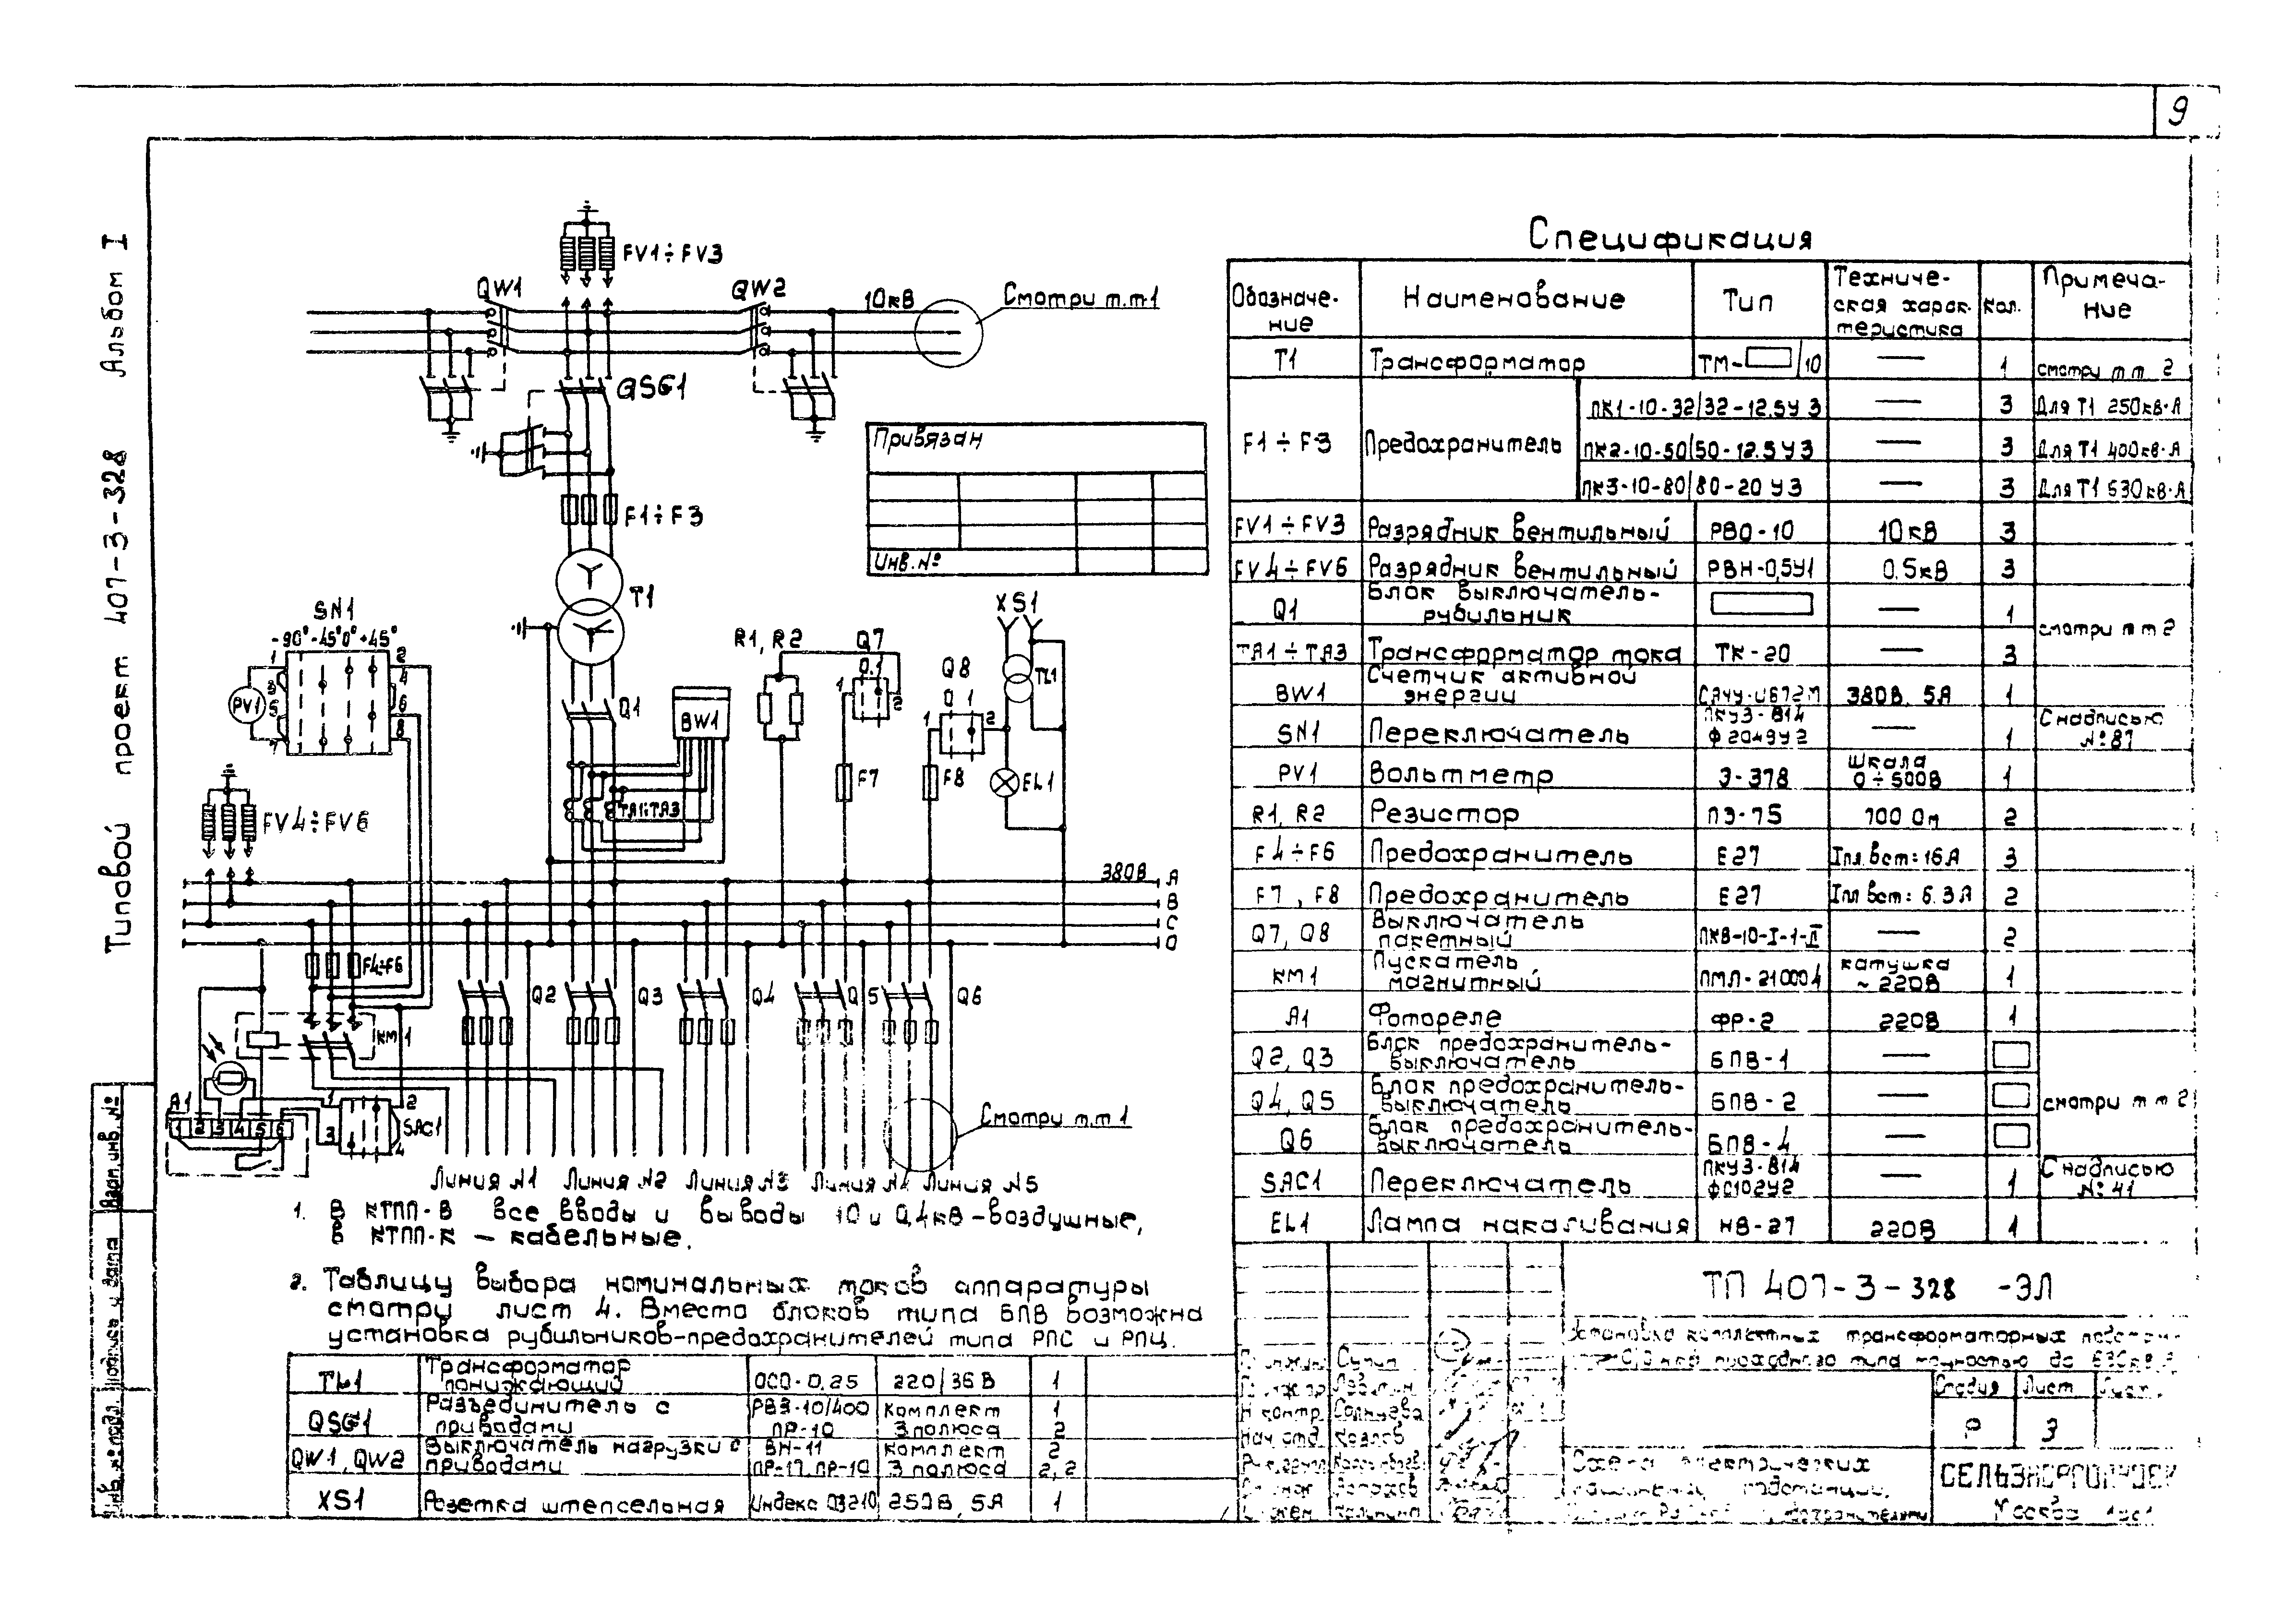 9
Типовой проект 407-3-328 Альбом I
FV1÷FV3
QW1
QW2
10кВ
Смотри т.т.1
QSG1
F1÷F3
T1
Привязан
Инв.№
SN1
-90° -45° 0° +45°
1
2
3
4
5
6
7
8
PV1
FV4÷FV6
Q1
BW1
TA1÷TA3
R1, R2
Q7
0 1
1
2
F7
Q8
0 1
1
2
F8
XS1
TL1
EL1
380В
A
B
C
0
F4÷F6
KM1
Q2
Q3
Q4
Q5
Q6
A1
1 2 3 4 5 6
1
2
3
4
SAC1
Смотри т.т 1
Линия №1 Линия №2 Линия №3 Линия №4 Линия №5
1. В КТПП-В все вводы и выводы 10 и 0,4кВ-воздушные,
в КТПП-К — кабельные.
2. Таблицу выбора номинальных токов аппаратуры
смотри лист 4. Вместо блоков типа БПВ возможна
установка рубильников-предохранителей типа РПС и РПЦ.
TL1 Трансформатор понижающий ОСО-0,25 220/36 В 1
QSG1 Разъединитель с приводами РВЗ-10/400 ПР-10 комплект 3 полюса 1 2
QW1, QW2 Выключатель нагрузки с приводами ВН-11 ПР-17, ПР-10 комплект 3 полюса 2 2,2
XS1 Розетка штепсельная Индекс 03210 250В, 5А 1
Спецификация
Обозначе-ние Наименование Тип Техниче-ская харак-теристика Кол. Примеча-ние
T1 Трансформатор ТМ- /10 — 1 смотри т т 2
F1÷F3 Предохранитель ПК1-10-32/32-12.5У3 — 3 Для Т1 250кВ·А
ПК2-10-50/50-12.5У3 — 3 Для Т1 400кВ·А
ПК3-10-80/80-20 У3 — 3 Для Т1 630кВ·А
FV1÷FV3 Разрядник вентильный РВО-10 10кВ 3
FV4÷FV6 Разрядник вентильный РВН-0,5У1 0.5кВ 3
Q1 Блок выключатель-рубильник — 1
смотри т т 2
TA1÷TA3 Трансформатор тока ТК-20 — 3
BW1 Счетчик активной энергии САЧУ-И672М 380В, 5А 1
SN1 Переключатель ПКУ3-В14 Ф2049У2 — 1 С надписью №87
PV1 Вольтметр Э-378 шкала 0÷500В 1
R1, R2 Резистор ПЭ-75 100 Ом 2
F4÷F6 Предохранитель Е27 Iпл.вст:16А 3
F7, F8 Предохранитель Е27 Iпл вст: 6.3А 2
Q7, Q8 Выключатель пакетный ПКВ-10-I-1-II — 2
KM1 Пускатель магнитный ПМЛ-210004 катушка ~220В 1
A1 Фотореле ФР-2 220В 1
Q2, Q3 Блок предохранитель-выключатель БПВ-1 —
Q4, Q5 Блок предохранитель-выключатель БПВ-2 — смотри т т 2
Q6 Блок предохранитель-выключатель БПВ-4 —
SAC1 Переключатель ПКУ3-В14 ФС102У2 — 1 С надписью №41
EL1 Лампа накаливания НВ-27 220В 1
ТП 407-3-328 -ЭЛ
Установка комплектных трансформаторных
проходного типа мощностью до 630кВ·А
Стадия Лист
Р 3
Н контр. Солнцева
Нач. отд. Козлов
Схема электрических
СЕЛЬЭНЕРГОПРОЕКТ
Москва
Инв.№ подл. Подпись и дата Взам.инв.№